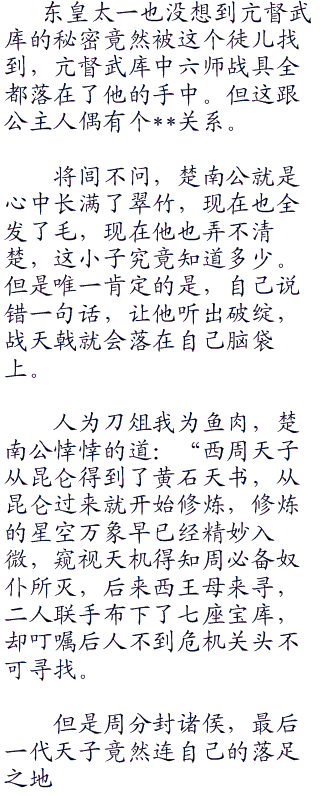 东皇太一也没想到亢督武
库的秘密竟然被这个徒儿找
到，亢督武库中六师战具全
都落在了他的手中。但这跟
公主人偶有个**关系。
将闾不问，楚南公就是
心中长满了翠竹，现在也全
发了毛，现在他也弄不清
楚，这小子究竟知道多少。
但是唯一肯定的是，自己说
错一句话，让他听出破绽，
战天戟就会落在自己脑袋
上。
人为刀俎我为鱼肉，楚
南公悻悻的道：“西周天子
从昆仑得到了黄石天书，从
昆仑过来就开始修炼，修炼
的星空万象早已经精妙入
微，窥视天机得知周必备奴
仆所灭，后来西王母来寻，
二人联手布下了七座宝库，
却叮嘱后人不到危机关头不
可寻找。
但是周分封诸侯，最后
一代天子竟然连自己的落足
之地